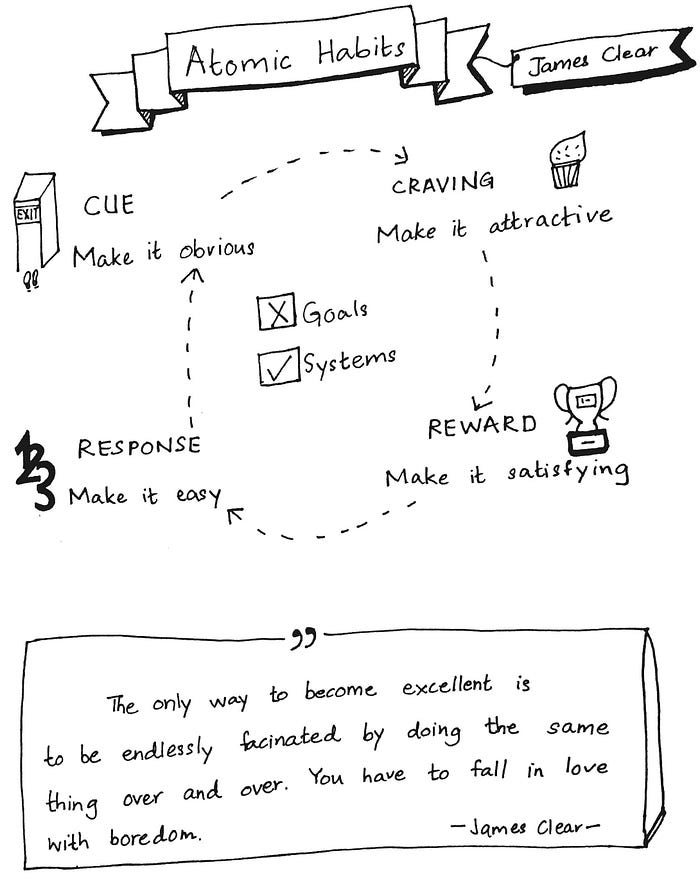 Atomic Habits
James Clear
EXIT
CUE
Make it obvious
CRAVING
Make it attractive
X Goals
✓ Systems
RESPONSE
Make it easy
123
REWARD
1-
Make it satisfying
”
The only way to become excellent is
to be endlessly facinated by doing the same
thing over and over. You have to fall in love
with boredom.
—James Clear—